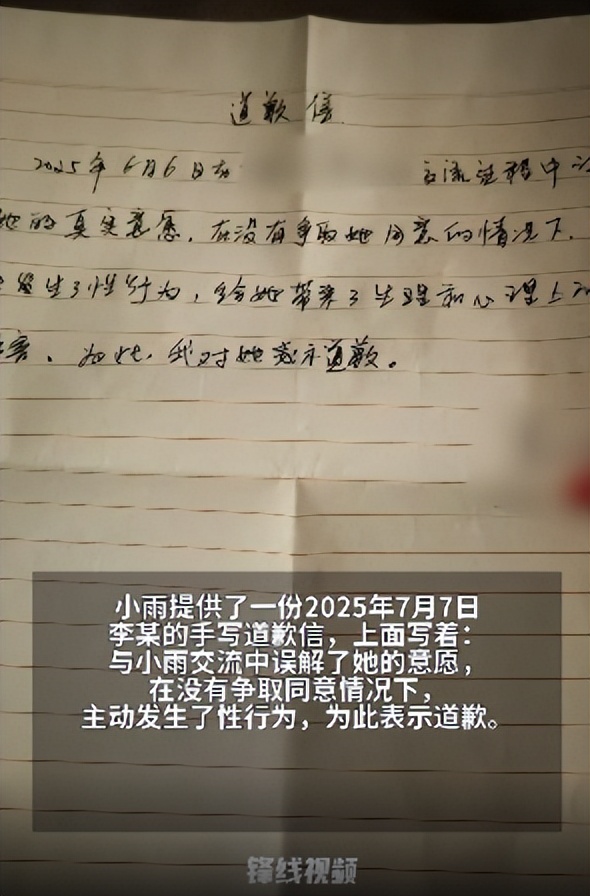 道歉信
2025年6月6日在 交流过程中
她的真实意愿,在没有争取她同意的情况下,
发生了性行为,给她带来了生理和心理上
害。为此,我对她表示道歉。
小雨提供了一份2025年7月7日
李某的手写道歉信,上面写着:
与小雨交流中误解了她的意愿,
在没有争取同意情况下,
主动发生了性行为,为此表示道歉。
锋线视频